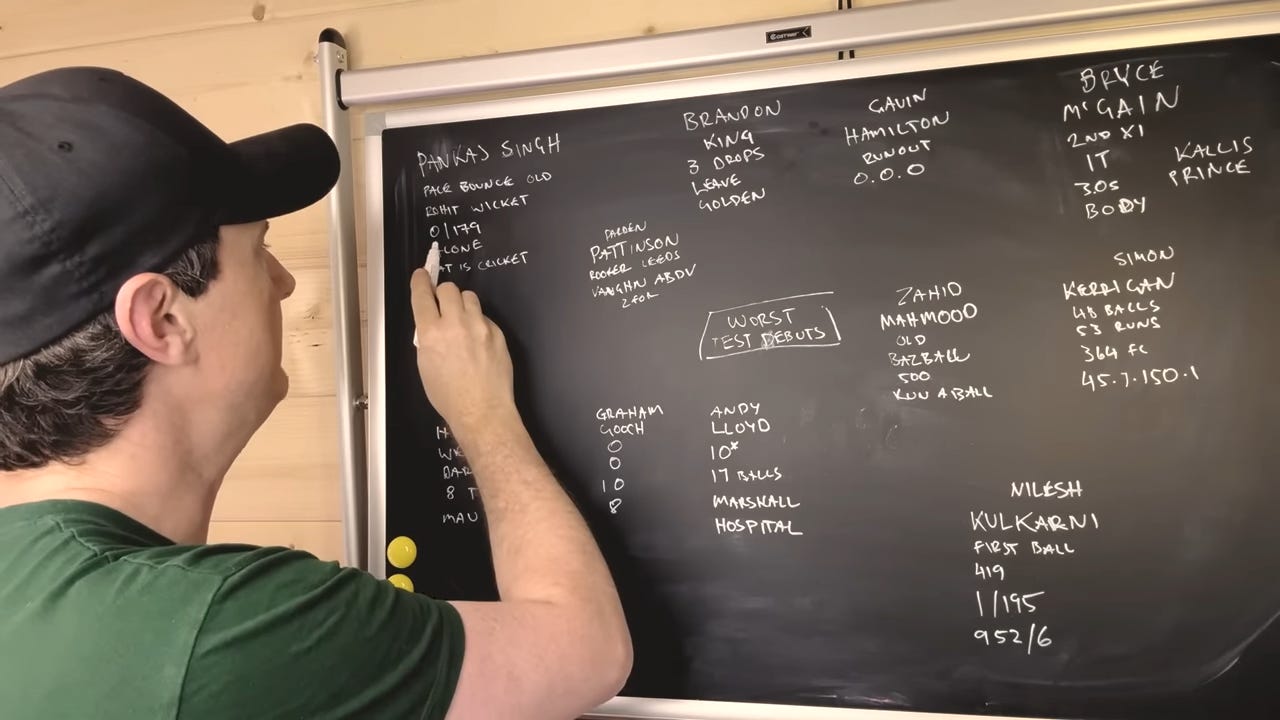 PANKAJ SINGH
PACE BOUNCE OLD
ROHIT WICKET
0/179
IS CRICKET
BRANDON
KING
3 DROPS
LEAVE
GOLDEN
GAVIN
HAMILTON
RUNOUT
0.0.0
BRYCE
McGAIN
2ND XI
IT
3.05
BODY
KALLIS
PRINCE
DARREN
PATTINSON
LEEDS
VAUGHN ABDV
2 FOR
WORST
TEST DEBUTS
ZAHID
MAHMOOD
OLD
BAZBALL
500
RUN A BALL
SIMON
KERRIGAN
48 BALLS
53 RUNS
364 FC
45.7.150.1
8
GRAHAM
GOOCH
0
0
10
8
ANDY
LLOYD
10*
17 BALLS
MARSHALL
HOSPITAL
NILESH
KULKARNI
FIRST BALL
419
1/195
952/6